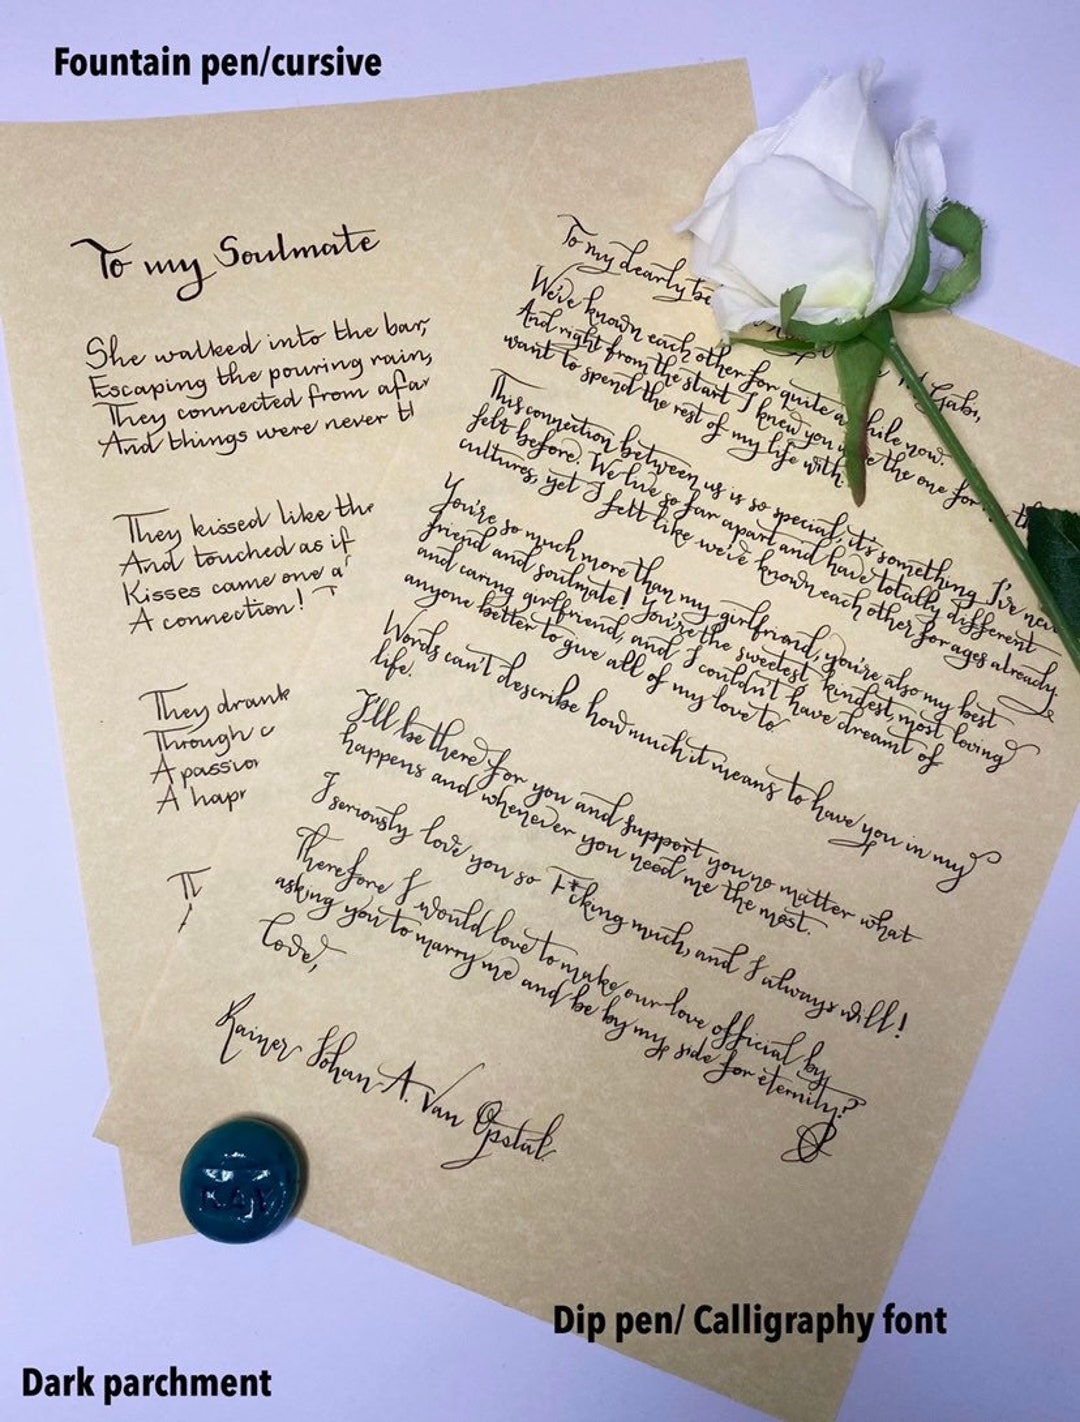 Fountain pen/cursive
To my Soulmate
She walked into the bar,
Escaping the pouring rain,
They connected from afar
And things were never
They kissed like the
And touched as if
Kisses came one
A connection!
They drank
Through
A
A
To my dearly
Gabi,
We've known each other for quite a while now.
And right from the start I knew you were the one for
want to spend the rest of my life with.
This connection between us is so special, it's something I've
felt before. We live so far apart and have totally different
cultures, yet I felt like we've known each other for ages already.
You're so much more than my girlfriend, you're also my best
friend and soulmate! You're the sweetest, kindest, most loving
and caring girlfriend, and I couldn't have dreamt of
anyone better to give all of my love to.
Words can't describe how much it means to have you in my
life.
I'll be there for you and support you no matter what
happens and whenever you need me the most.
I seriously love you so F*cking much, and I always will!
Therefore I would love to make our love official by
asking you to marry me and be by my side for eternity?
Love,
Rainer Johan A. Van Opstal
RAY
Dip pen/ Calligraphy font
Dark parchment